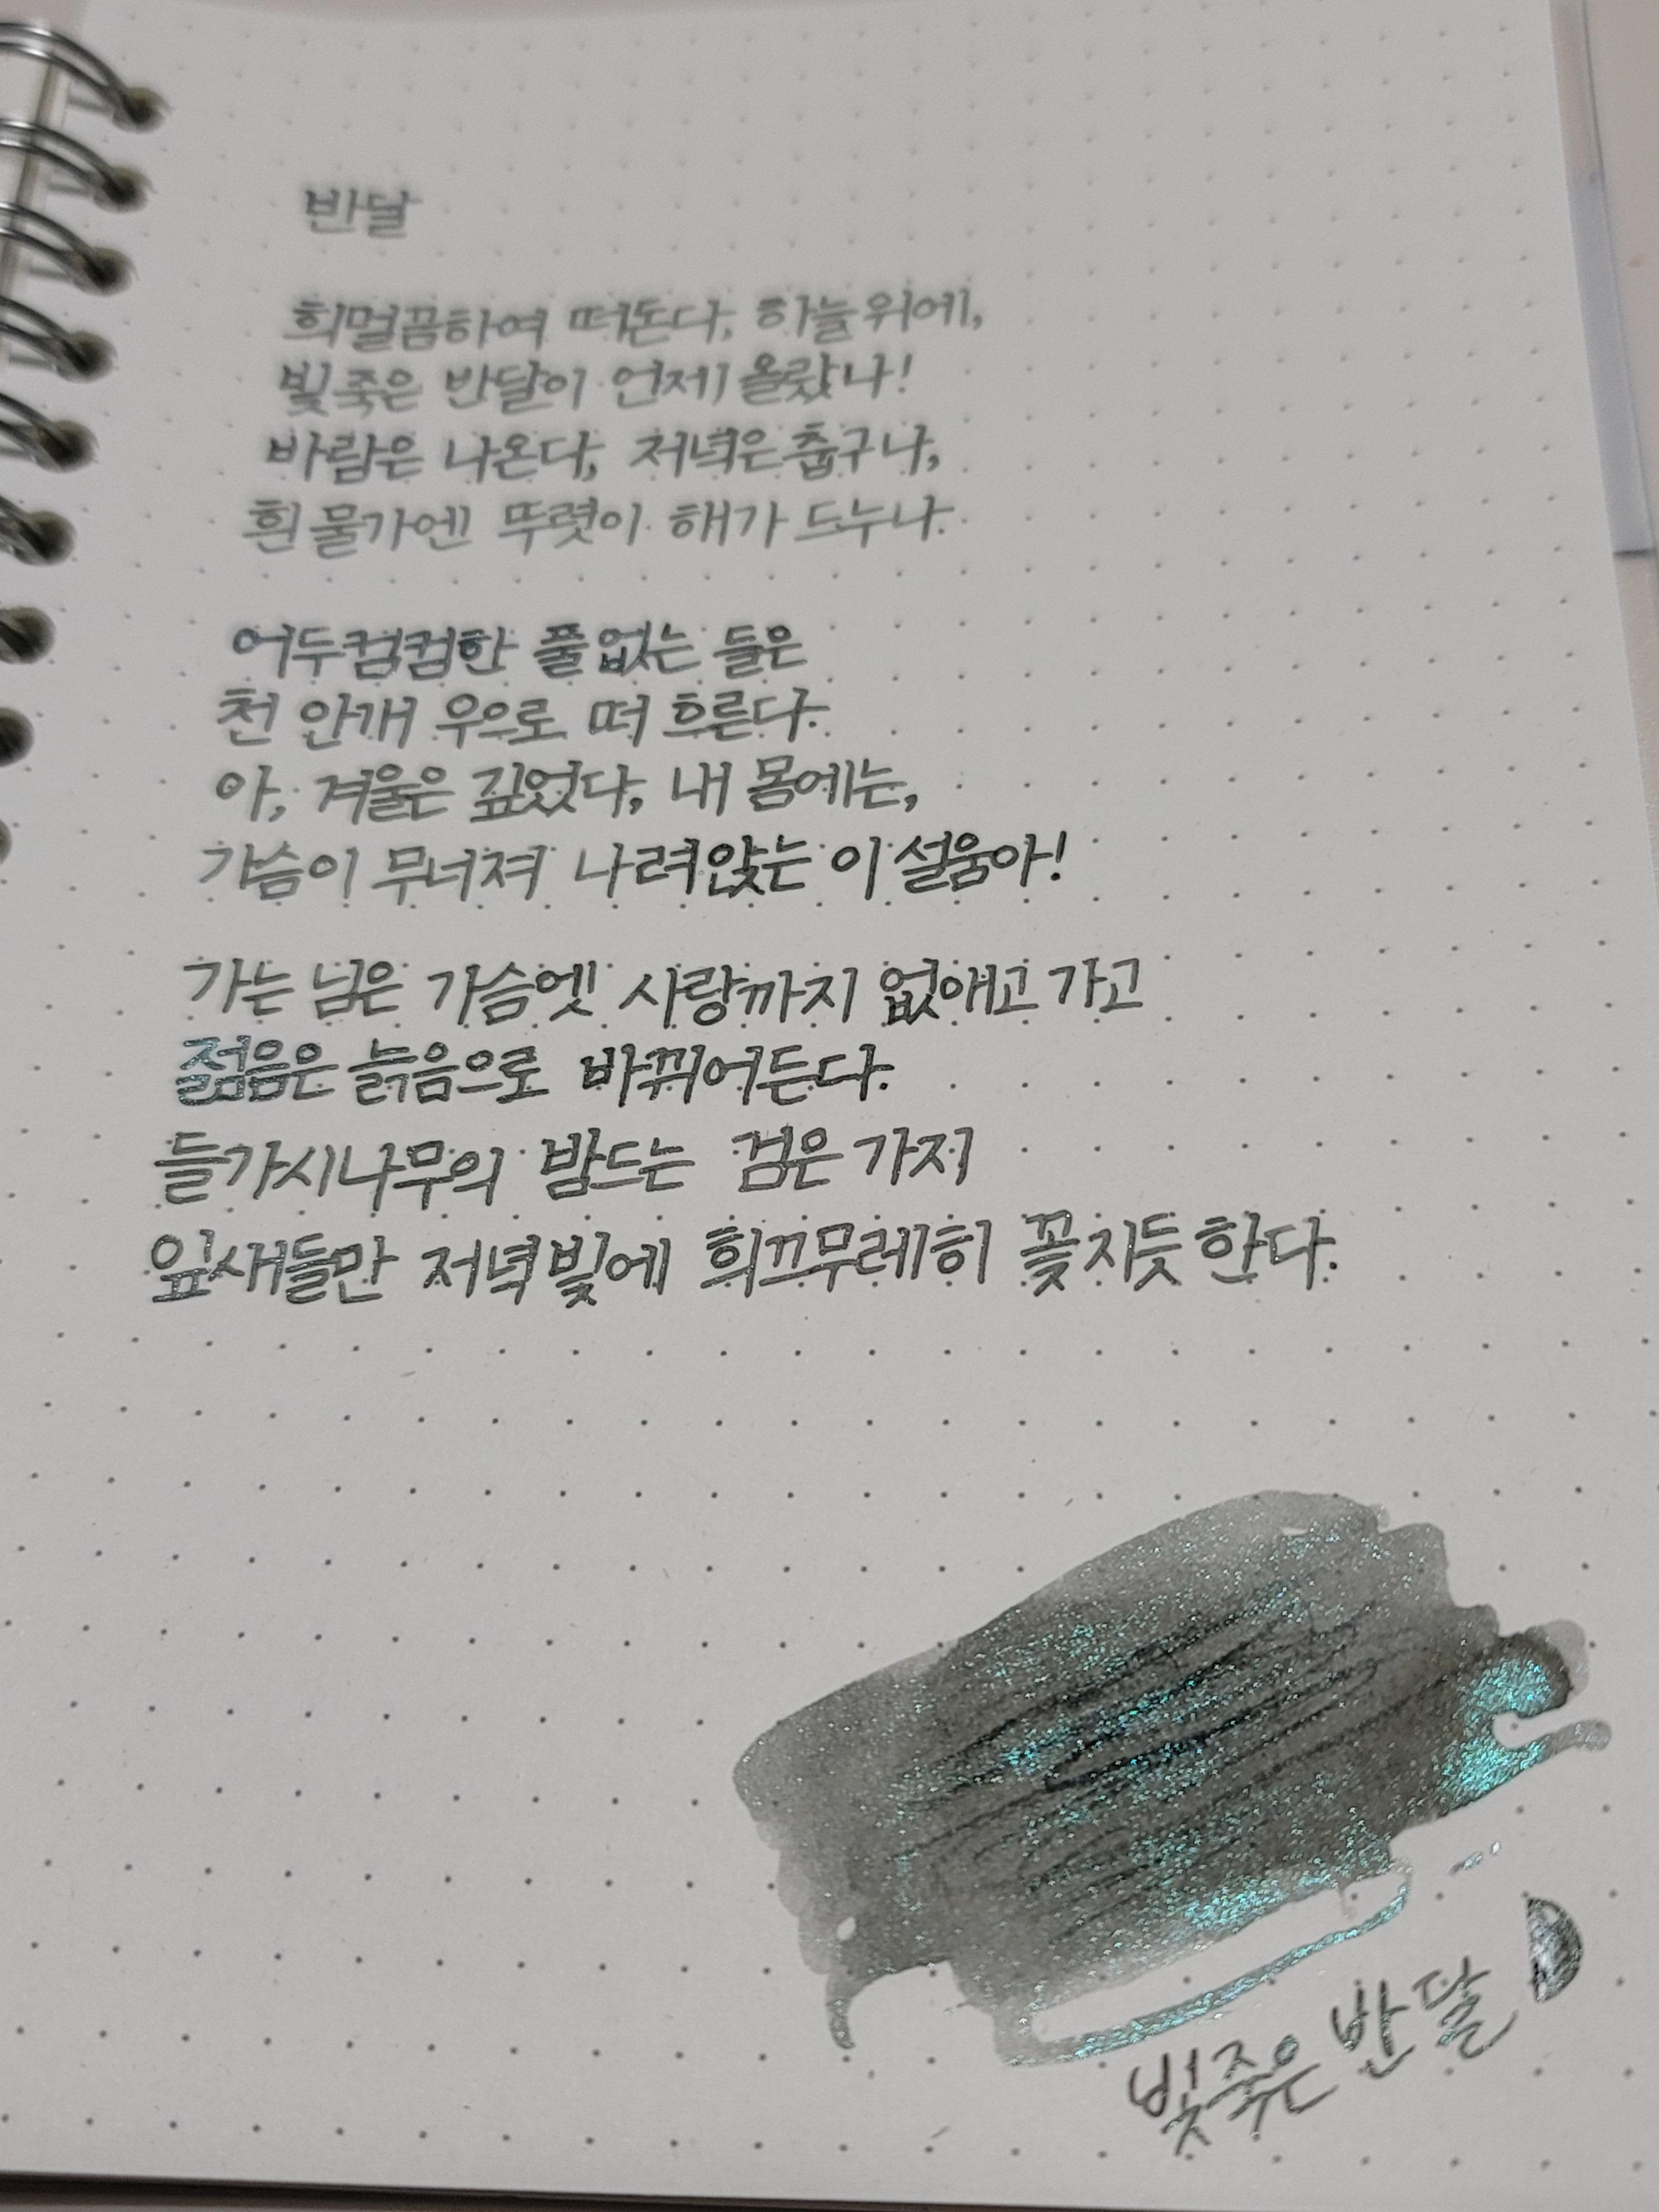 반달
희멀끔하여 떠돈다, 하늘 위에,
빛죽은 반달이 언제 올랐나!
바람은 나온다, 저녁은 춥구나,
흰 물가엔 뚜렷이 해가 드누나.
어두컴컴한 풀 없는 들은
천 안개 우으로 떠 흐른다.
아, 겨울은 깊었다, 내 몸에는,
가슴이 무너져 나려앉는 이 설움아!
가는 님은 가슴엣 사랑까지 없애고 가고
젊음은 늙음으로 바뀌어든다.
들가시나무의 밤드는 검은 가지
잎새들만 저녁빛에 희끄무레히 꽃지듯 한다.
빛죽은 반달